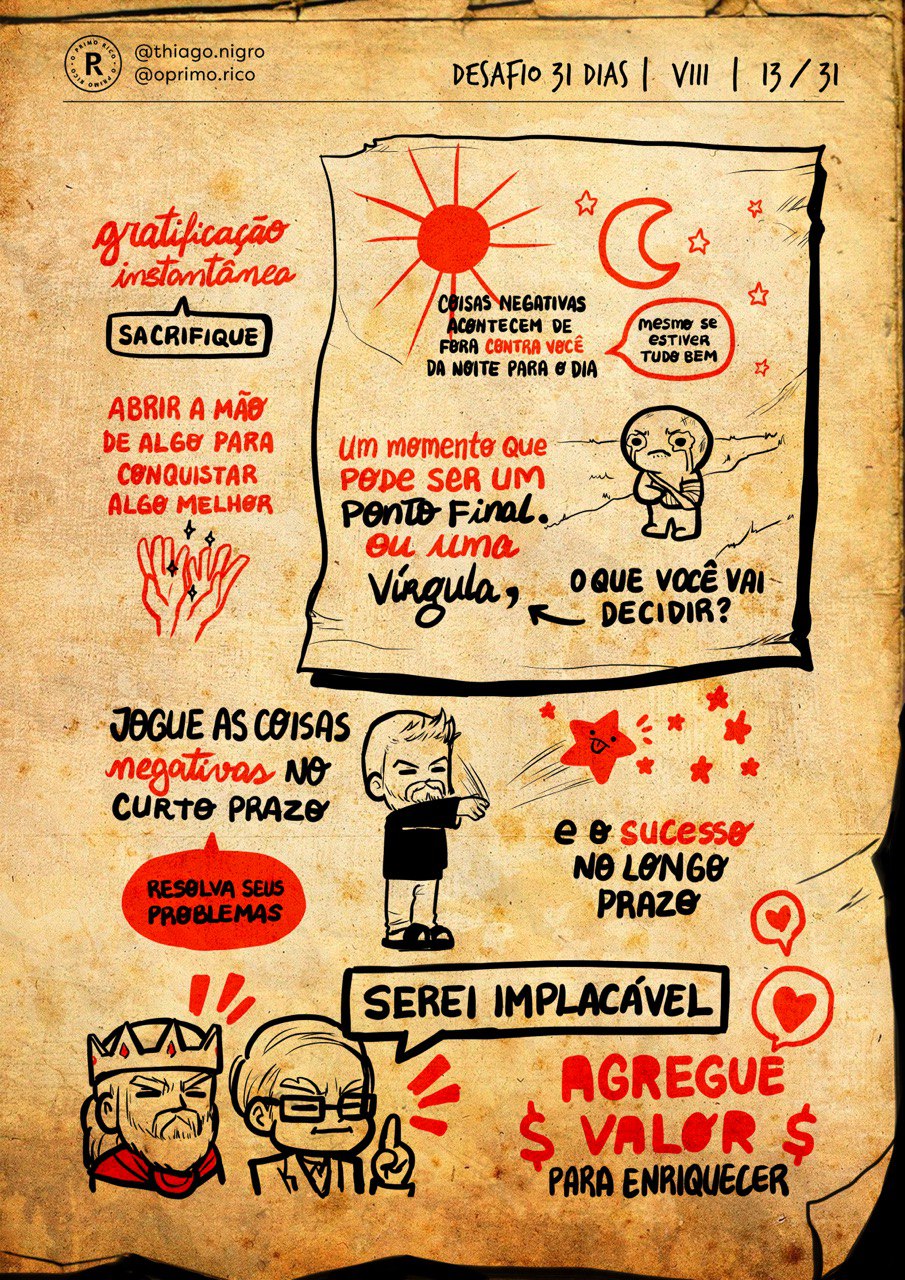 R
O PRIMO RICO • O PRIMO RICO •
@thiago.nigro
@oprimo.rico
DESAFIO 31 DIAS | VIII | 13 / 31
gratificação
instantânea
SACRIFIQUE
ABRIR A MÃO
DE ALGO PARA
CONQUISTAR
ALGO MELHOR
COISAS NEGATIVAS
ACONTECEM DE
FORA CONTRA VOCÊ
DA NOITE PARA O DIA
MESMO SE
ESTIVER
TUDO BEM
UM MOMENTO QUE
PODE SER UM
PONTO FINAL.
OU UMA
VÍRGULA,
O QUE VOCÊ VAI
DECIDIR?
JOGUE AS COISAS
negativas NO
CURTO PRAZO
RESOLVA SEUS
PROBLEMAS
E O SUCESSO
NO LONGO
PRAZO
SEREI IMPLACÁVEL
AGREGUE
$ VALOR $
PARA ENRIQUECER